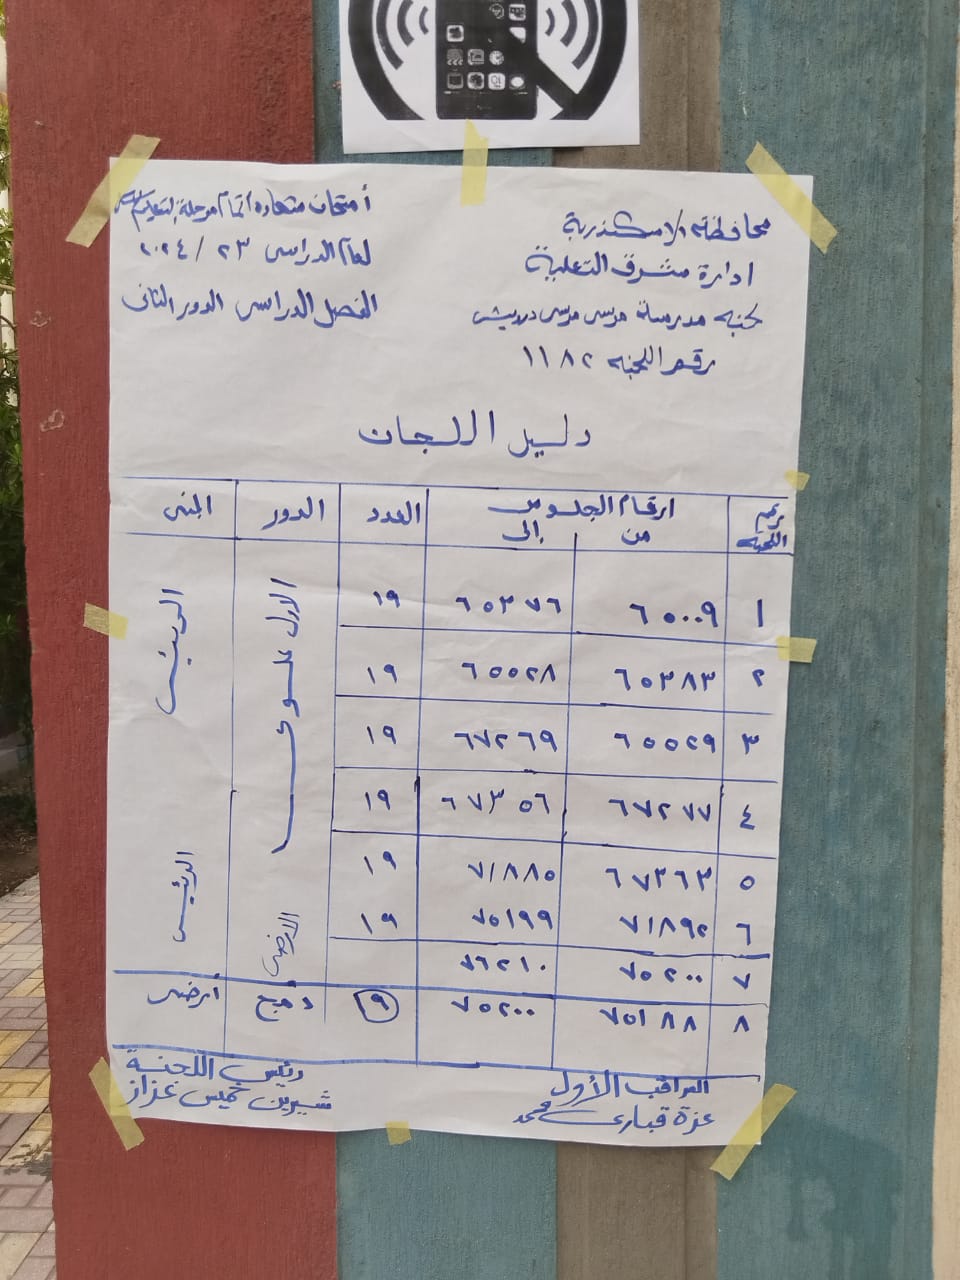 محافظة الاسكندرية
ادارة شرق التعليمية
لجنه مدرسة مرسى مرسى درويش
رقم اللجنه ١١٨٢
أمتحان شهاده اتمام مرحلة التعليم
لعام الدراسى ٢٣ / ٢٠٢٤
الفصل الدراسى الدور الثانى
دليل اللجان
رقم اللجنه | ارقام الجلوس من | إلى | العدد | الدور | المبنى
١ | ٦٥٠٠٩ | ٦٥٣٧٦ | ١٩ | الاول علوى | الرئيسى
٢ | ٦٥٣٨٣ | ٦٥٥٢٨ | ١٩
٣ | ٦٥٥٢٩ | ٦٧٢٦٩ | ١٩
٤ | ٦٧٢٧٧ | ٦٧٣٥٦ | ١٩
٥ | ٦٧٣٦٣ | ٧١٨٨٥ | ١٩ | الارضى | الرئيسى
٦ | ٧١٨٩٢ | ٧٥١٩٩ | ١٩
٧ | ٧٥٢٠٠ | ٧٦٢١٠
٨ | ٧٥١٨٨ | ٧٥٢٠٠ | ٩ | دمج | ارضى
المراقب الأول
عزة قبارى محمد
رئيس اللجنة
شيرين خميس عزاز